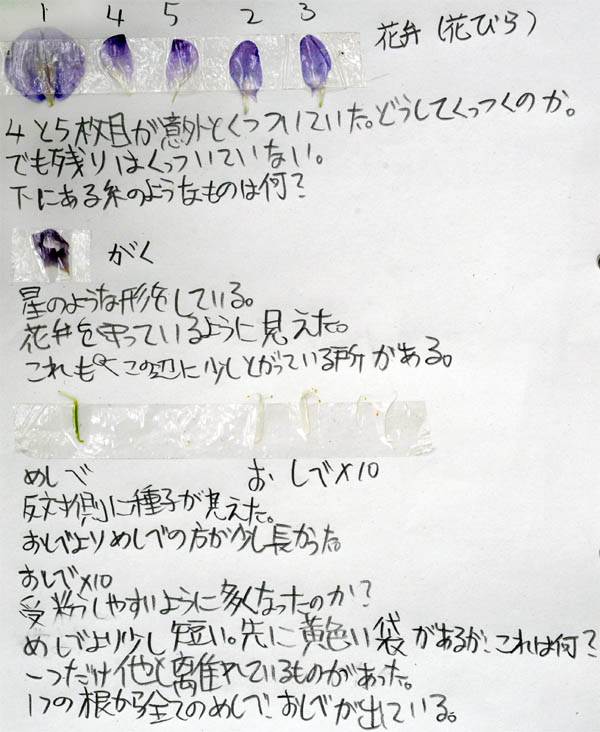 1 4 5 2 3
花弁(花びら)
4と5枚目が意外とくっついていた。どうしてくっつくのか。
でも残りはくっついていない。
下にある糸のようなものは何?
がく
星のような形をしている。
花弁を守っているように見えた。
これも この辺に少しとがっている所がある。
めしべ おしべ×10
反対側に種子が見えた。
おしべよりめしべの方が少し長かった
おしべ×10
受粉しやすいように多くなったのか?
めしべより少し短い。先に黄色い袋があるが、これは何?
一つだけ他と離れているものがあった。
1つの根から全てのめしべ、おしべが出ている。